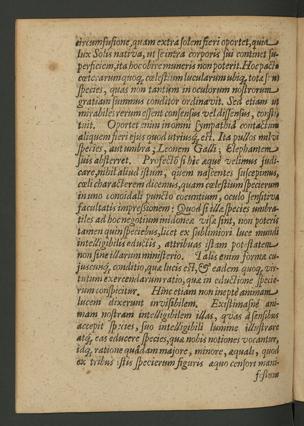 circumfusione, quam extra solem fieri oportet, quia
lux Solis nativa, ut se intra corporis sui continet su-
perficiem, ita hoc obire muneris non poterit. Hoc pacto
cæterarum quoq, cœlestium lucularum ubiq, tota sunt
species, quas non tantum in oculorum nostrorum
gratiam summus conditor ordinavit. Sed etiam ut
mirabiles rerum essent consensus vel dissensus, consti-
tuit. Oportet enim in omni sympathia contactum
aliquem fieri ejus quod utriusq, est. Ita pullos milvi
species, aut umbra; Leonem Galli; Elephantem
suis absterret. Profectò si hic aquè velimus judi-
care, nihil aliud istum, quem nascentes suscepimus,
cœli characterem dicemus, quam cœlestium specierum
in uno conoidali puncto coeuntium, oculo sensitiva
facultatis impressionem; Quod si illæ species umbra-
tiles ad hoc negotium inidoneæ visæ sint, non poteris
tamen quin speciebus, licet ex sublimiori luce mundi
intelligibilis eductis, attribuas istam potestatem
non sine illarum ministerio. Talis enim forma cu-
juscunq, conditio, quæ lucis est, & eadem quoq, vir-
tutum exercendarum ratio, quæ in eductione specie-
rum conspicitur. Hinc etiam non ineptè animam
lucem dixerunt invisibilem. Existimasnè ani-
mam nostram intelligibilem illas, quas à sensibus
accepit species, suo intelligibili lumine illustrare
atq, eas educere species, quæ nobis notiones vocantur,
idq, ratione quadam majore, minore, æquali, quod
ex tribus istis specierum figuris æquo censori mani-
festum